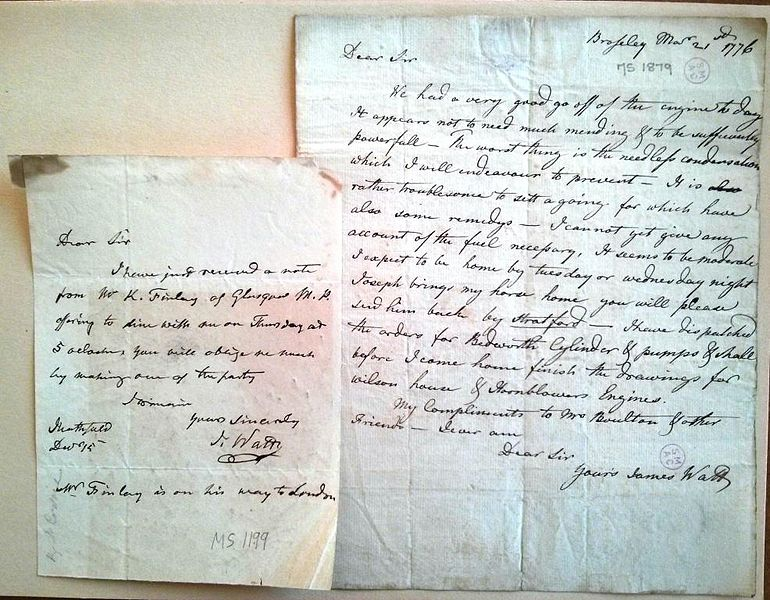 Dear Sir
I have just received a note
from Mr K. Finlay of Glasgow M.P.
offering to dine with me on Thursday at
5 oclock, you will oblige me much
by making one of the party
I remain
Yours Sincerely
J. Watt
Heathfield
Decr 15
Mr Finlay is on his way to London
MS 1199
Broseley Mar 21st 1776
MS 1879
SM
Dear Sir
We had a very good go off of the engine to day
It appears not to need much mending & to be sufficiently
powerfull — The worst thing is the needless condensation
which I will endeavour to prevent — It is also
rather troublesome to sett a going for which have
also some remedys — I cannot yet give any
account of the fuel necessary, It seems to be moderate
I expect to be home by tuesday or wednesday night
Joseph brings my horse home you will please
send him back by Stratford — I have dispatched
the orders for Bedworth Cylinder & pumps & shall
before I come home finish the drawings for
wilson house & Hornblowers Engines.
My Compliments to Mrs Boulton & other
Friends — I ever am
Dear Sir
Yours James Watt
SM